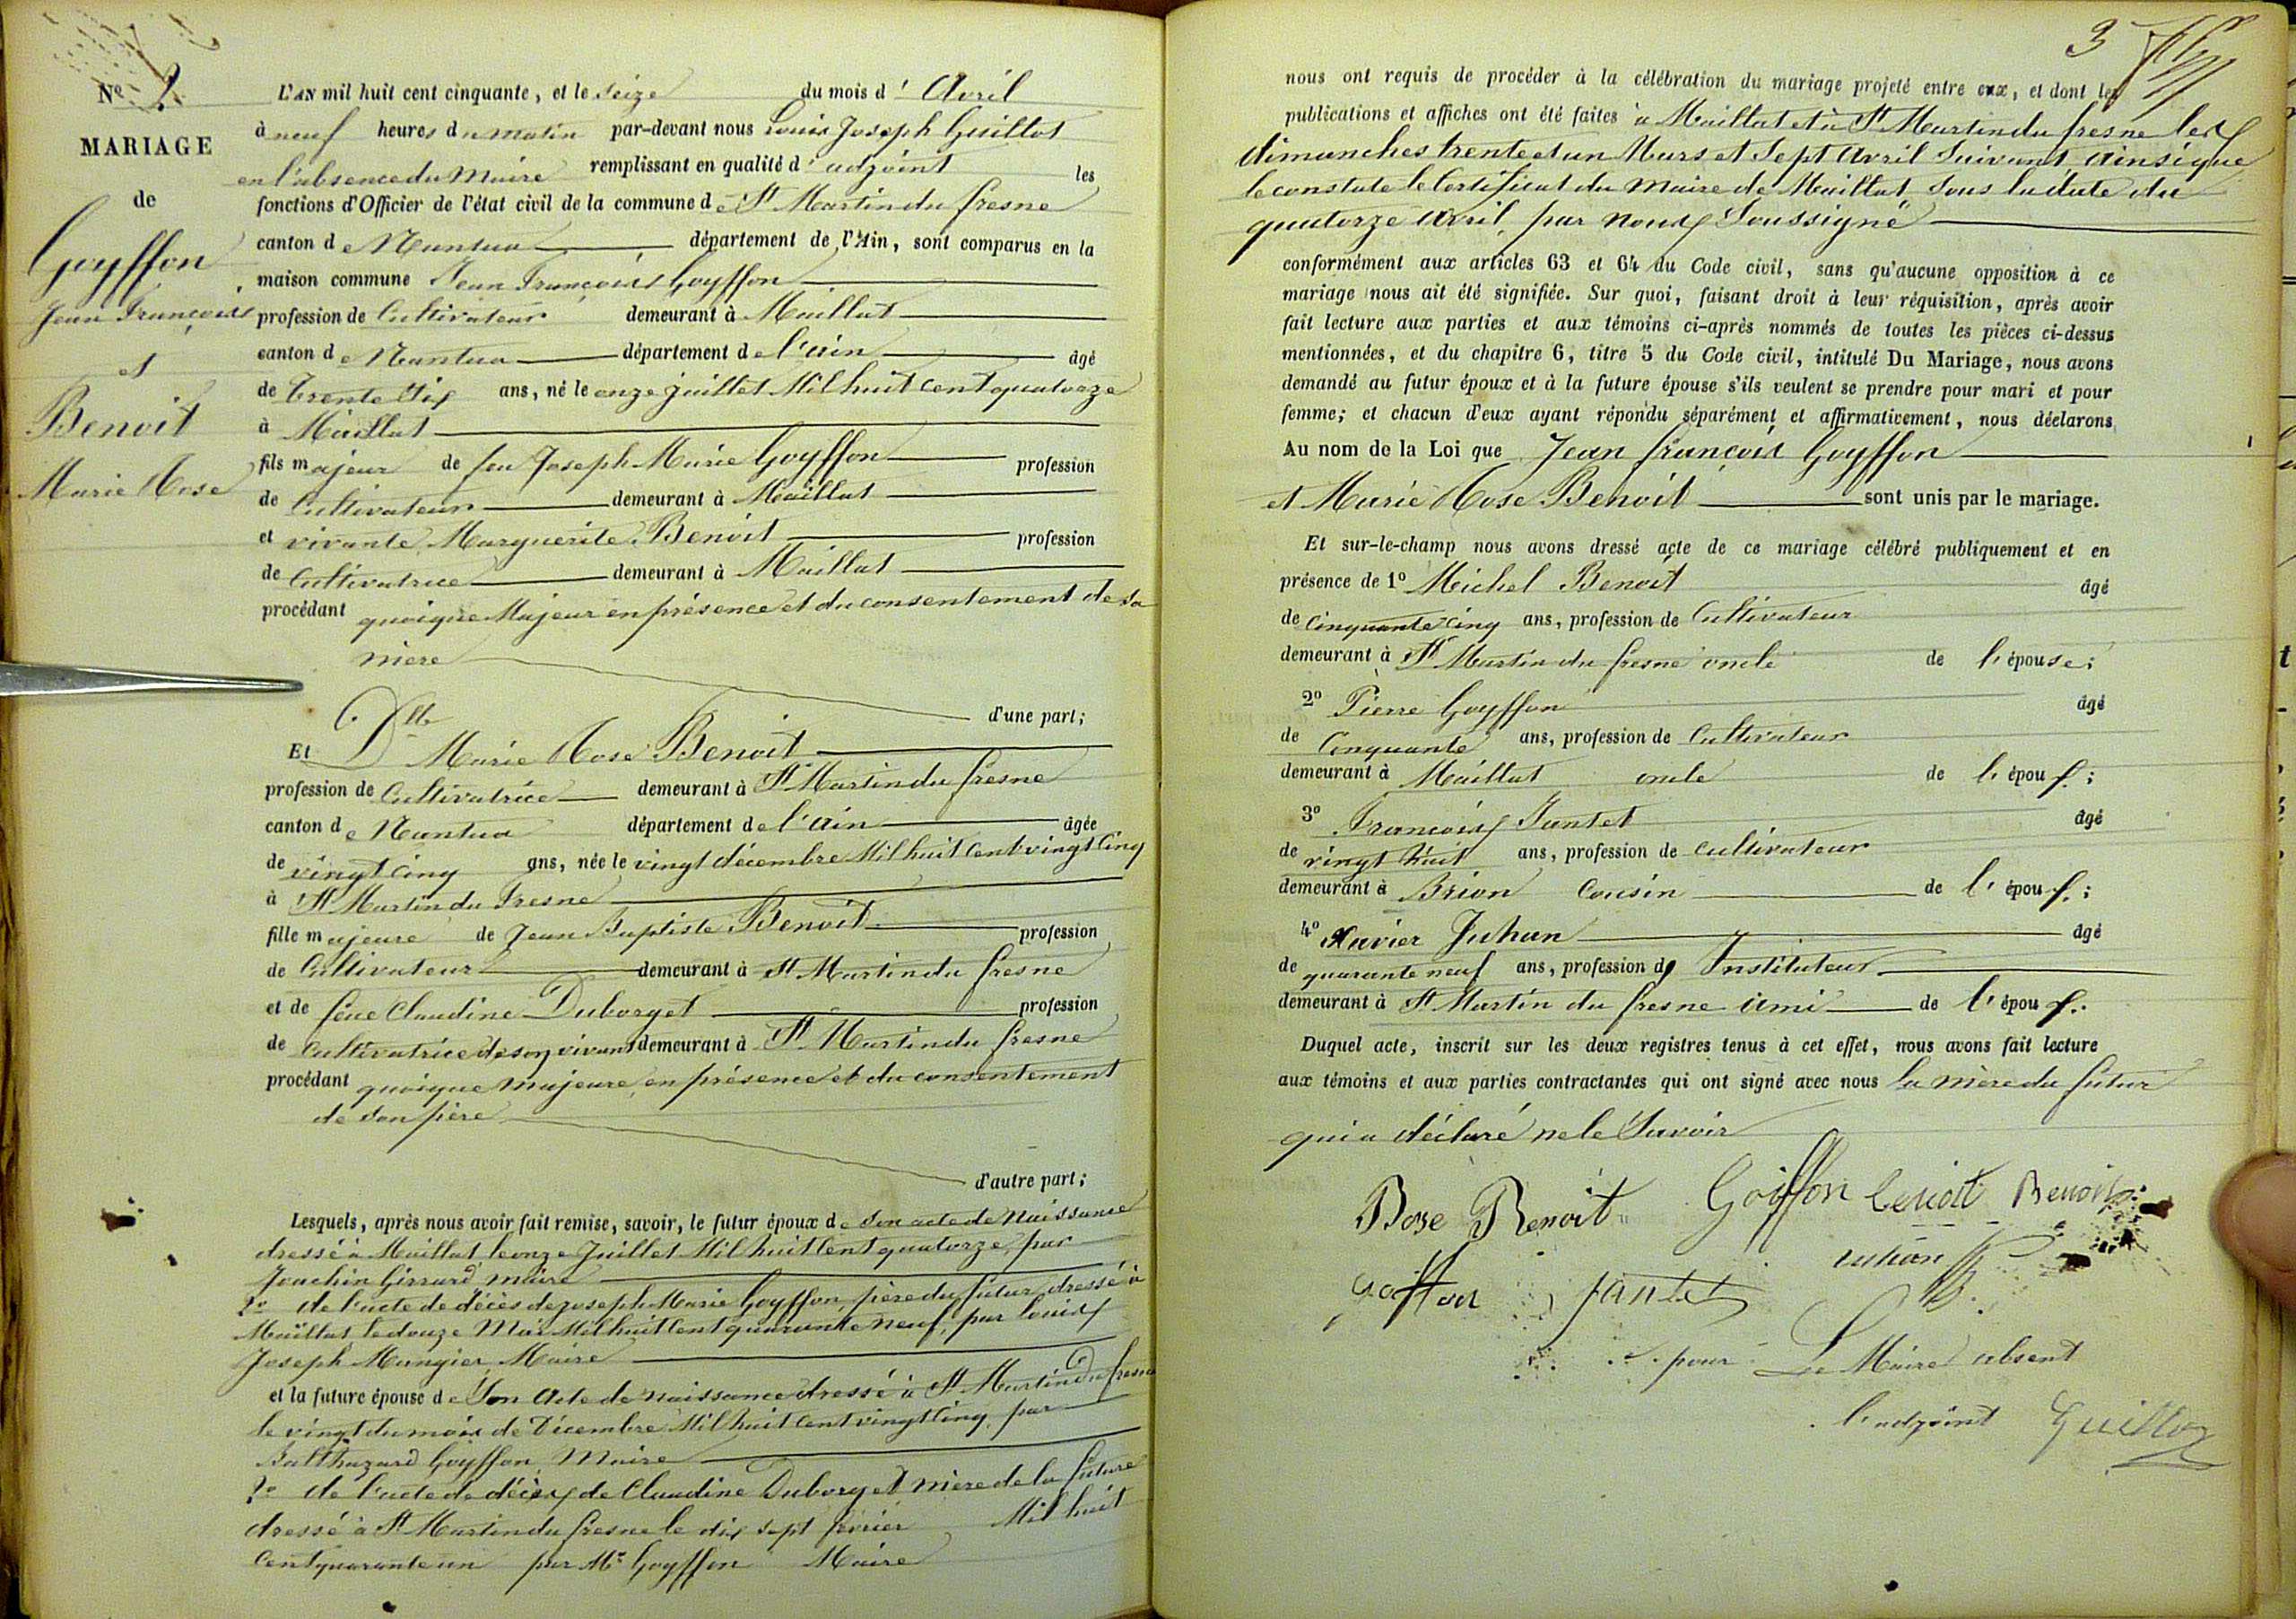 Nº 2
MARIAGE
de
Goyffon
Jean François
et
Benoit
Marie Rose
L'AN mil huit cent cinquante, et le seize du mois d' Avril
à neuf heures du matin par-devant nous Louis Joseph Guillot
en l'absence du Maire remplissant en qualité d' adjoint les
fonctions d'Officier de l'état civil de la commune de St Martin du fresne
canton de Nantua département de l'Ain, sont comparus en la
maison commune Jean François Goyffon
profession de Cultivateur demeurant à Maillat
canton de Nantua département de l'ain âgé
de trente six ans, né le onze juillet Mil huit Cent quatorze
à Maillat
fils majeur de feu Joseph Marie Goyffon profession
de Cultivateur demeurant à Maillat
et vivante Marguerite Benoit profession
de Cultivatrice demeurant à Maillat
procédant quoique Majeur en présence et du consentement de sa
mere
d'une part;
Et Dlle Marie Rose Benoit
profession de Cultivatrice demeurant à St Martin du fresne
canton de Nantua département de l'ain âgée
de vingt Cinq ans, née le vingt décembre Mil huit Cent vingt Cinq
à St Martin du Fresne
fille majeure de Jean Baptiste Benoit profession
de Cultivateur demeurant à St Martin du fresne
et de feue Claudine Duborget profession
de Cultivatrice de son vivant demeurant à St Martin du fresne
procédant quoique majeure, en présence et du consentement
de son père
d'autre part;
Lesquels, après nous avoir fait remise, savoir, le futur époux de son acte de Naissance
dressé à Maillat le onze Juillet Mil huit Cent quatorze, par
Joachin Girrard maire
2º de l'acte de décès de Joseph Marie Goyffon, père du futur, dressé à
Maillat le douze Mai Mil huit Cent quarante Neuf, par Louis
Joseph Mungier Maire
et la future épouse de Son Acte de naissance dressé à St Martin Du fresne
le vingt du mois de Décembre Mil huit Cent vingt Cinq, par
Balthazard Goyffon, Maire
2º de l'acte de décès de Claudine Duborget mère de la future
dressé à St Martin du fresne le dix sept février Mil huit
Cent quarante un par Mr Goyffon Maire
3
nous ont requis de procéder à la célébration du mariage projeté entre eux, et dont les
publications et affiches ont été faites à Maillat et à St Martin du fresne les
dimanches trente et un Mars et Sept Avril Suivant ainsi que
le constate le Certificat du Maire de Maillat, sous la date du
quatorze Avril, par nous Soussigné
conformément aux articles 63 et 64 du Code civil, sans qu'aucune opposition à ce
mariage nous ait été signifiée. Sur quoi, faisant droit à leur réquisition, après avoir
fait lecture aux parties et aux témoins ci-après nommés de toutes les pièces ci-dessus
mentionnées, et du chapitre 6, titre 5 du Code civil, intitulé Du Mariage, nous avons
demandé au futur époux et à la future épouse s'ils veulent se prendre pour mari et pour
femme; et chacun d'eux ayant répondu séparément et affirmativement, nous déclarons
Au nom de la Loi que Jean François Goyffon
et Marie Rose Benoit sont unis par le mariage.
Et sur-le-champ nous avons dressé acte de ce mariage célébré publiquement et en
présence de 1º Michel Benoit âgé
de Cinquante cinq ans, profession de Cultivateur
demeurant à St Martin du fresne oncle de l'épouse;
2º Pierre Goyffon âgé
de Cinquante ans, profession de Cultivateur
demeurant à Maillat oncle de l'époux;
3º François Jantet âgé
de vingt huit ans, profession de cultivateur
demeurant à Brion Cousin de l'époux;
4º Xavier Juhan âgé
de quarante neuf ans, profession d' Instituteur
demeurant à St Martin du fresne ami de l'époux.
Duquel acte, inscrit sur les deux registres tenus à cet effet, nous avons fait lecture
aux témoins et aux parties contractantes qui ont signé avec nous la mère du futur
qui a déclaré ne le Savoir
Rose Benoit Goiffon benoit Benoit
Goiffon Jantet Juhan
pour Le Maire absent
l'adjoint Guillot